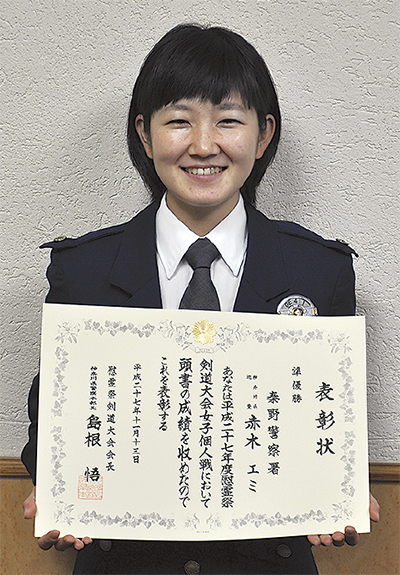 表彰状
準優勝
秦野警察署
神奈川県
巡査
赤木エミ
あなたは平成二十七年度慰霊祭
剣道大会女子個人戦において
頭書の成績を収めたので
これを表彰する
平成二十七年十一月十三日
慰霊祭剣道大会会長
島根悟